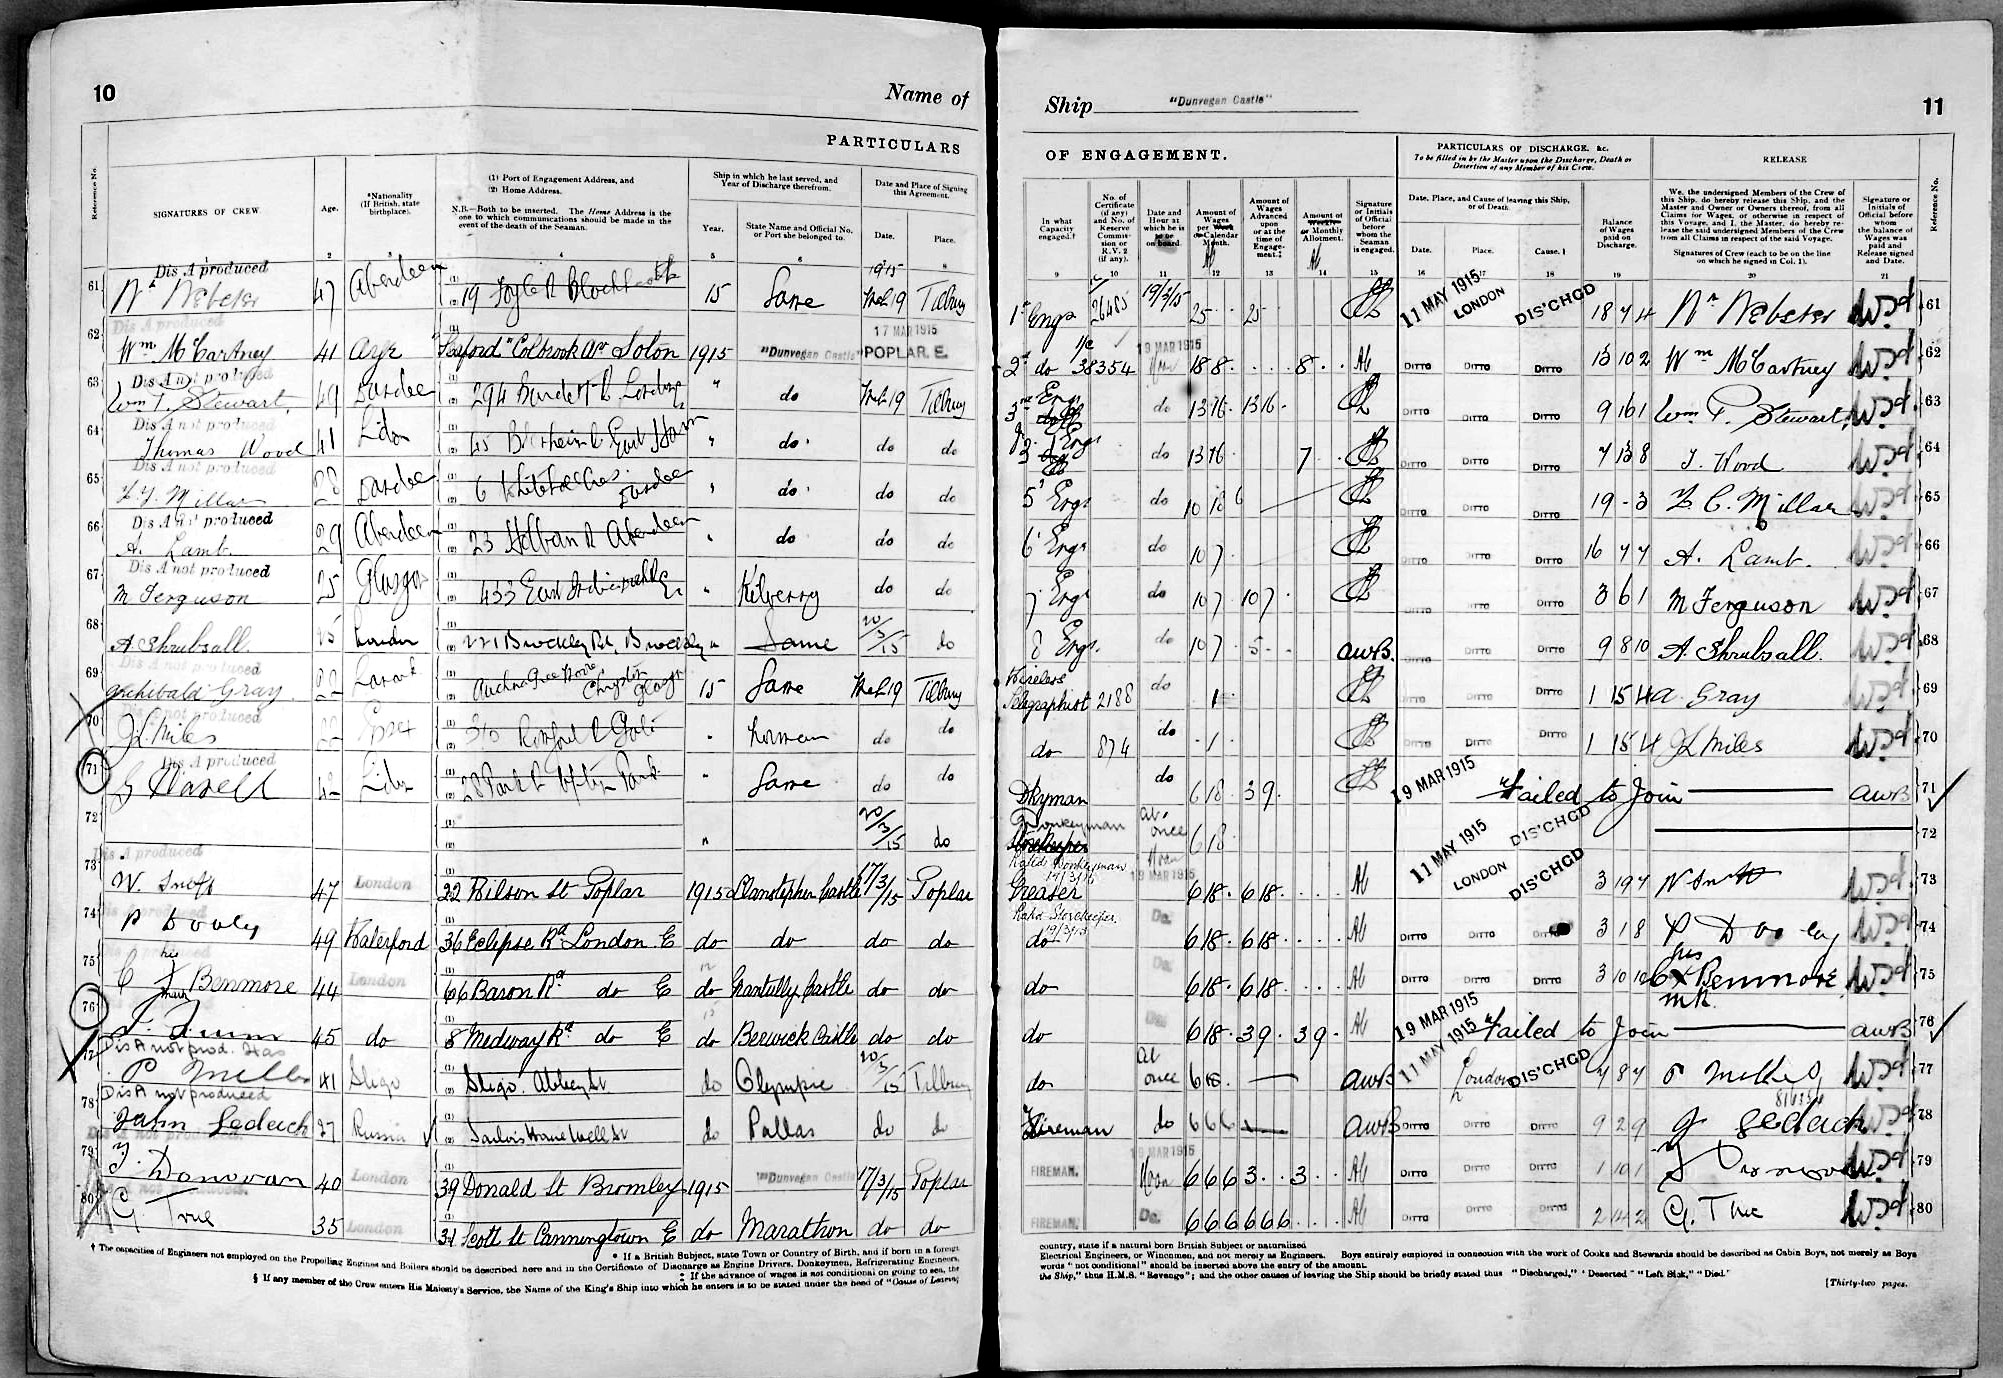 10
Name of
PARTICULARS
Reference No.
SIGNATURES OF CREW.
Age.
*Nationality (If British, state birthplace).
(1) Port of Engagement Address, and
(2) Home Address.
N.B.—Both to be inserted. The Home Address is the one to which communications should be made in the event of the death of the Seaman.
Ship in which he last served, and Year of Discharge therefrom.
Year.
State Name and Official No. or Port she belonged to.
Date and Place of Signing this Agreement.
Date.
Place.
2 3 4 5 6
Dis A produced
61 Wm Webster 47 Aberdeen 19 15 Same 1915 Mch 19 Tilbury
Dis A produced
62 Wm McCartney 41 Ayr "Seaford" Colbrook Av Soton 1915 "Dunvegan Castle" 17 MAR 1915 POPLAR. E.
Dis A not produced
63 Wm P. Stewart. 49 Dundee 294 Burdett Rd London " do Mch 19 Tilbury
Dis A not produced
64 Thomas Wood 41 45 Blenheim Rd East Ham " do do do
Dis A not produced
65 Millar 28 Dundee 6 Whitehall Cres Dundee " do do do
Dis A not produced
66 A. Lamb 29 Aberdeen 23 Holburn Rd Aberdeen " do do do
Dis A not produced
67 M Ferguson 25 Glasgow 433 East " Kilberry do do
68 A. Shrubsall 25 London 221 Brockley Rd, Brockley " Same 20/3/15 do
Dis A not produced
69 Archibald Gray 22 Lanark Chryston Glasgow 15 Same Mch 19 Tilbury
Dis A not produced
70 J L Miles 22 Essex " do do
Dis A produced
71 42 28 Park Rd Upton Park " Same do do
72 " 20/3/15 do
Dis A produced
73 W. 47 London 22 Wilson St Poplar 1915 Llanstephan Castle 17/3/15 Poplar
74 P Dooley 49 Waterford 36 Eclipse Rd London E do do do do
75 C his X mark Benmore 44 London 66 Baron Rd do E do Grantully Castle do do
76 J. Quinn 45 do 8 Medway Rd do E do Berwick Castle do do
Dis A not prod.
77 P 41 Sligo Sligo. Abbey St do Olympic 20/3/15 Tilbury
Dis A not produced
78 John Sedach 27 Russia Sailors Home Well St do Pallas do do
Dis A not produced
79 J. Donovan 40 London 39 Donald St Bromley 1915 "Dunvegan Castle" 17/3/15 Poplar
80 G True 35 London 31 Scott St Canningtown E do Marathon do do
† The capacities of Engineers not employed on the Propelling Engines and Boilers should be described here and in the Certificate of Discharge as Engine Drivers, Donkeymen, Refrigerating Engineers,
* If a British Subject, state Town or Country of Birth, and if born in a foreign
‡ If the advance of wages is not conditional on going to sea, the
§ If any member of the Crew enters His Majesty's Service, the Name of the King's Ship into which he enters is to be stated under the head of "Cause of Leaving
Ship "Dunvegan Castle"
11
OF ENGAGEMENT.
PARTICULARS OF DISCHARGE, &c.
To be filled in by the Master upon the Discharge, Death or Desertion of any Member of his Crew.
RELEASE
In what Capacity engaged.†
No. of Certificate (if any) and No. of Reserve Commission or R.V.2 (if any).
Date and Hour at which he is to be on board.
Amount of Wages per Week or Calendar Month.
Amount of Wages Advanced upon or at the time of Engagement.‡
Amount of Weekly or Monthly Allotment.
Signature or Initials of Official before whom the Seaman is engaged.
Date, Place, and Cause of leaving this Ship, or of Death.
Date.
Place.
Cause.§
Balance of Wages paid on Discharge.
We, the undersigned Members of the Crew of this Ship, do hereby release this Ship, and the Master and Owner or Owners thereof, from all Claims for Wages, or otherwise in respect of this Voyage, and I, the Master, do hereby release the said undersigned Members of the Crew from all Claims in respect of the said Voyage.
Signatures of Crew (each to be on the line on which he signed in Col. 1).
Signature or Initials of Official before whom the balance of Wages was paid and Release signed and Date.
Reference No.
9 10 11 12 13 14 15 16 17 18 19 20 21
1st Engr 26485 19/3/15 25 25 11 MAY 1915 LONDON DIS'CHGD 18 7 4 Wm Webster 61
2nd do 38354 19 MAR 1915 Noon 18 8 8 DITTO DITTO DITTO 13 10 2 Wm McCartney 62
3rd Engr do 13 16 13 16 DITTO DITTO DITTO 9 16 1 Wm P. Stewart 63
Engr do 13 16 7 DITTO DITTO DITTO 7 13 8 T. Wood 64
5 Engr do 10 18 6 DITTO DITTO DITTO 19 - 3 Millar 65
6 Engr do 10 7 DITTO DITTO DITTO 16 7 7 A. Lamb. 66
7 Engr do 10 7 10 7 DITTO DITTO DITTO 3 6 1 M Ferguson 67
8 Engr. do 10 7 5 AWB. DITTO DITTO DITTO 9 8 10 A. Shrubsall. 68
Wireless Telegraphist 2188 do 1 DITTO DITTO DITTO 1 15 4 A. Gray 69
do 874 do 1 DITTO DITTO DITTO 1 15 4 J L Miles 70
Dkyman do 6 18 3 9 19 MAR 1915 Failed to Join AWB 71
Donkeyman Storekeeper At once 6 18 11 MAY 1915 DIS'CHGD 72
Rated Donkeyman 19/3/15
Greaser Noon 19 MAR 1915 6 18 6 18 LONDON DIS'CHGD 3 19 7 73
Rated Storekeeper 19/3/15
do Do. 6 18 6 18 DITTO DITTO DITTO 3 1 8 P Dooley 74
do Do. 6 18 6 18 DITTO DITTO DITTO 3 10 10 C his X mk Benmore 75
do Do. 6 18 3 9 3 9 19 MAR 1915 Failed to Join AWB 76
do At once 6 18 AWB 11 MAY 1915 London DIS'CHGD 7 8 7 77
Fireman do 6 6 6 AWB DITTO DITTO DITTO 9 2 9 J Sedach 78
FIREMAN. 19 MAR 1915 Noon 6 6 6 3 3 DITTO DITTO DITTO 1 10 1 J Donovan 79
FIREMAN. Do. 6 6 6 6 6 6 DITTO DITTO DITTO 2 4 2 G. True 80
country, state if a natural born British Subject or naturalized
Electrical Engineers, or Winchmen, and not merely as Engineers. Boys entirely employed in connection with the work of Cooks and Stewards should be described as Cabin Boys, not merely as Boys
words "not conditional" should be inserted above the entry of the amount.
the Ship," thus H.M.S. "Revenge"; and the other causes of leaving the Ship should be briefly stated thus "Discharged," "Deserted" "Left Sick," "Died."
[Thirty-two pages.